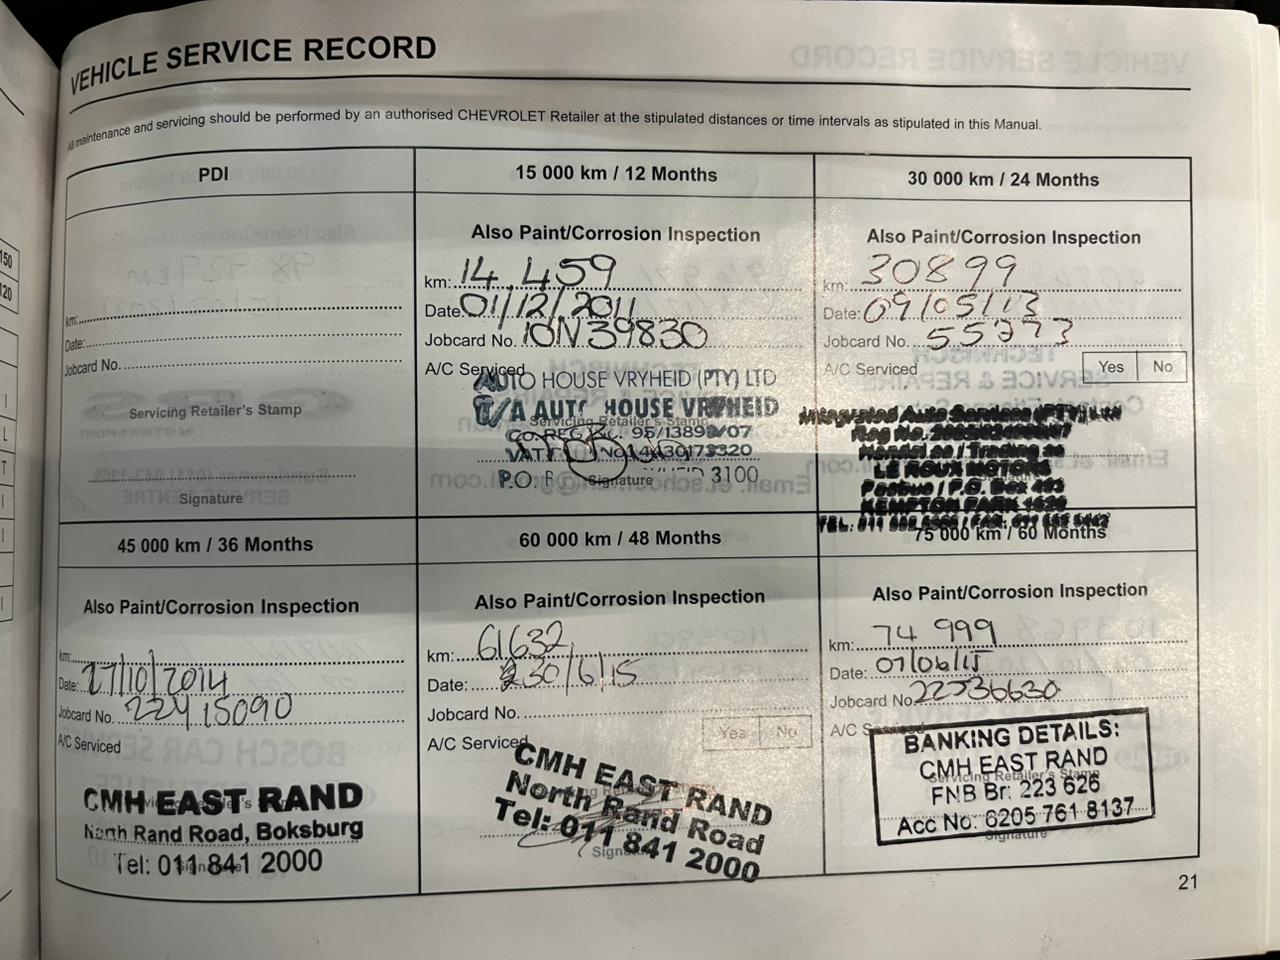 VEHICLE SERVICE RECORD
All maintenance and servicing should be performed by an authorised CHEVROLET Retailer at the stipulated distances or time intervals as stipulated in this Manual.
PDI
km:
Date:
Jobcard No.
Servicing Retailer's Stamp
Signature
15 000 km / 12 Months
Also Paint/Corrosion Inspection
km: 14 459
Date: 01/12/2011
Jobcard No. ION39830
A/C Serviced
AUTO HOUSE VRYHEID (PTY) LTD
T/A AUTO HOUSE VRYHEID
Servicing Retailer's Stamp
CO. REG
VAT
P.O. 3100
Signature
30 000 km / 24 Months
Also Paint/Corrosion Inspection
km: 30899
Date: 09/05/13
Jobcard No. 55773
A/C Serviced Yes No
Integrated Auto Services (PTY) Ltd
Reg No.
Handel as / Trading as
LE ROUX MOTORS
Posbus / P.O. Box 493
KEMPTON PARK 1620
TEL: 011 / FAX: 011
45 000 km / 36 Months
Also Paint/Corrosion Inspection
km:
Date: 27/10/2014
Jobcard No. 22415090
A/C Serviced
CMH EAST RAND
North Rand Road, Boksburg
Tel: 011 841 2000
60 000 km / 48 Months
Also Paint/Corrosion Inspection
km: 61632
Date: 30/6/15
Jobcard No.
A/C Serviced Yes No
CMH EAST RAND
North Rand Road
Tel: 011 841 2000
75 000 km / 60 Months
Also Paint/Corrosion Inspection
km: 74 999
Date: 07/06/15
Jobcard No. 22536630
A/C Serviced
BANKING DETAILS:
CMH EAST RAND
Servicing Retailer's Stamp
FNB Br: 223 626
Acc No: 6205 761 8137
Signature
21